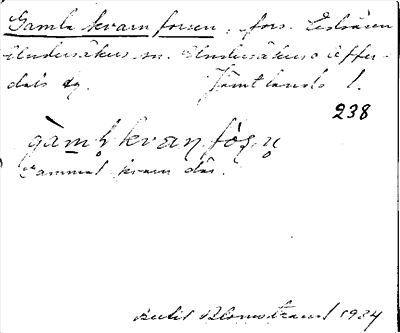 Gamla kvarn forsen, fors.
Undersåkers sn. Undersåkers o Offer-
dals tg. Jämtlands l.
238
gàmḷ kvaɳ fós̩ņ
Gammal kvarn där.
Bertil Blomstrand 1934